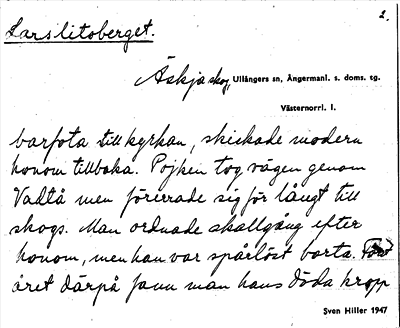 2.
Larslitoberget.
Äskja skog, Ullångers sn, Ångermanl. s. doms. tg.
Västernorrl. l.
barfota till kyrkan, skickade modern
honom tillbaka. Pojken tog vägen genom
Vadtå men förirrade sig för långt till
skogs. Man ordnade skallgång efter
honom, men han var spårlöst borta.
året därpå fann man hans döda kropp
Sven Hiller 1947